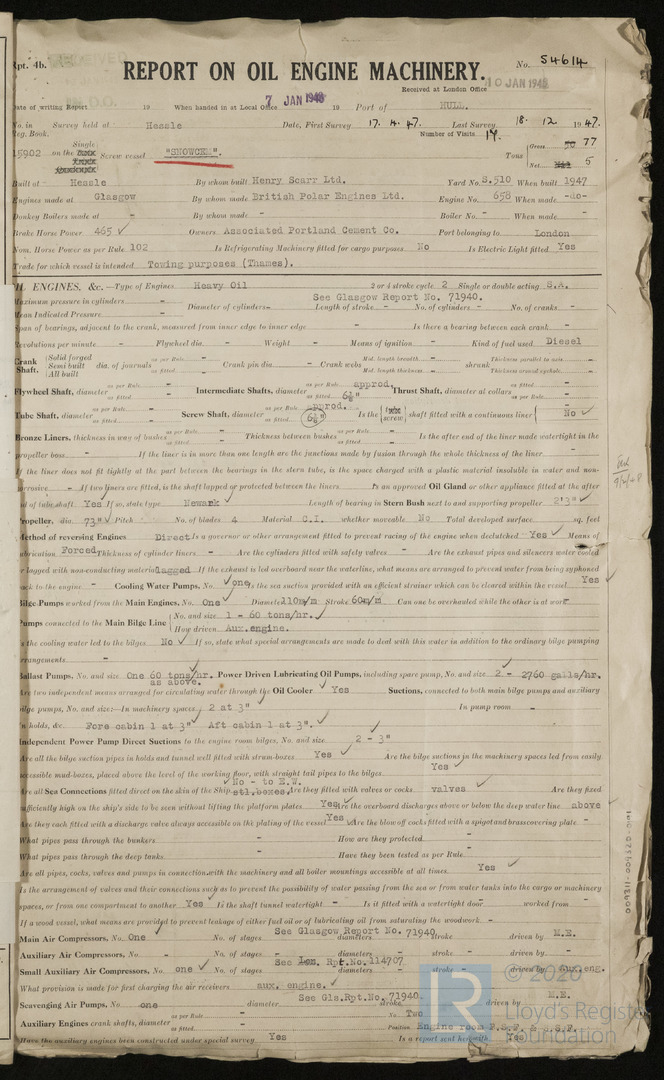 Rpt. 4b.
No. 54614
REPORT ON OIL ENGINE MACHINERY.
Received at London Office 10 JAN 1948
Date of writing Report 19 When handed in at Local Office 7 JAN 1948 19 Port of HULL.
No. in Survey held at Hessle Date, First Survey 17. 4. 47. Last Survey 18. 12 1947.
Reg. Book. Number of Visits 14.
15902 on the Single Screw vessel "SNOWCEM". Tons Gross 77 Net 5
Built at Hessle By whom built Henry Scarr Ltd. Yard No. S.510 When built 1947
Engines made at Glasgow By whom made British Polar Engines Ltd. Engine No. 658 When made -do-
Donkey Boilers made at - By whom made - Boiler No. - When made -
Brake Horse Power 465 Owners Associated Portland Cement Co. Port belonging to London
Nom. Horse Power as per Rule 102 Is Refrigerating Machinery fitted for cargo purposes No Is Electric Light fitted Yes
Trade for which vessel is intended Towing purposes (Thames).
OIL ENGINES, &c.—Type of Engines Heavy Oil 2 or 4 stroke cycle 2 Single or double acting S.A.
See Glasgow Report No. 71940.
Maximum pressure in cylinders - Diameter of cylinders - Length of stroke - No. of cylinders - No. of cranks -
Mean Indicated Pressure -
Span of bearings, adjacent to the crank, measured from inner edge to inner edge - Is there a bearing between each crank -
Revolutions per minute - Flywheel dia. - Weight - Means of ignition - Kind of fuel used Diesel
Crank Shaft, Solid forged Semi built All built dia. of journals as per Rule - as fitted - Crank pin dia. - Crank webs Mid. length breadth - Mid. length thickness - shrunk Thickness parallel to axis - Thickness around eyehole -
Flywheel Shaft, diameter as per Rule - as fitted - Intermediate Shafts, diameter as per Rule approd. as fitted 6⅛" Thrust Shaft, diameter at collars as fitted - as per Rule -
Tube Shaft, diameter as per Rule - as fitted - Screw Shaft, diameter as per Rule approd. as fitted 6⅛" Is the tube screw shaft fitted with a continuous liner No
Bronze Liners, thickness in way of bushes as per Rule - as fitted - Thickness between bushes as per Rule - as fitted - Is the after end of the liner made watertight in the
propeller boss - If the liner is in more than one length are the junctions made by fusion through the whole thickness of the liner -
If the liner does not fit tightly at the part between the bearings in the stern tube, is the space charged with a plastic material insoluble in water and non-
corrosive - If two liners are fitted, is the shaft lapped or protected between the liners - Is an approved Oil Gland or other appliance fitted at the after
end of tube shaft Yes If so, state type Newark Length of bearing in Stern Bush next to and supporting propeller 2'3"
Propeller, dia. 73" Pitch - No. of blades 4 Material C.I. whether moveable No Total developed surface - sq. feet
Method of reversing Engines Direct Is a governor or other arrangement fitted to prevent racing of the engine when declutched Yes Means of
lubrication Forced Thickness of cylinder liners - Are the cylinders fitted with safety valves - Are the exhaust pipes and silencers water cooled
or lagged with non-conducting material lagged If the exhaust is led overboard near the waterline, what means are arranged to prevent water from being syphoned
back to the engine - Cooling Water Pumps, No. one Is the sea suction provided with an efficient strainer which can be cleared within the vessel Yes
Bilge Pumps worked from the Main Engines, No. One Diameter 110m/m Stroke 60m/m Can one be overhauled while the other is at work -
Pumps connected to the Main Bilge Line No. and size 1 - 60 tons/hr.
How driven Aux.engine.
Is the cooling water led to the bilges No If so, state what special arrangements are made to deal with this water in addition to the ordinary bilge pumping
arrangements -
Ballast Pumps, No. and size One 60 tons/hr. as above. Power Driven Lubricating Oil Pumps, including spare pump, No. and size 2 - 2760 galls/hr.
Are two independent means arranged for circulating water through the Oil Cooler Yes Suctions, connected to both main bilge pumps and auxiliary
bilge pumps, No. and size:—In machinery spaces 2 at 3" In pump room -
In holds, &c. Fore cabin 1 at 3" Aft cabin 1 at 3".
Independent Power Pump Direct Suctions to the engine room bilges, No. and size 2 - 3"
Are all the bilge suction pipes in holds and tunnel well fitted with strum-boxes Yes Are the bilge suctions in the machinery spaces led from easily
accessible mud-boxes, placed above the level of the working floor, with straight tail pipes to the bilges Yes
Are all Sea Connections fitted direct on the skin of the Ship No - to E.W. stl.boxes. Are they fitted with valves or cocks valves Are they fixed
sufficiently high on the ship's side to be seen without lifting the platform plates Yes Are the overboard discharges above or below the deep water line above
Are they each fitted with a discharge valve always accessible on the plating of the vessel Yes Are the blow off cocks fitted with a spigot and brass covering plate -
What pipes pass through the bunkers - How are they protected -
What pipes pass through the deep tanks - Have they been tested as per Rule -
Are all pipes, cocks, valves and pumps in connection with the machinery and all boiler mountings accessible at all times Yes
Is the arrangement of valves and their connections such as to prevent the possibility of water passing from the sea or from water tanks into the cargo or machinery
spaces, or from one compartment to another Yes Is the shaft tunnel watertight - Is it fitted with a watertight door - worked from -
If a wood vessel, what means are provided to prevent leakage of either fuel oil or of lubricating oil from saturating the woodwork -
Main Air Compressors, No. One No. of stages See Glasgow Report No. 71940 diameters stroke - driven by M.E.
Auxiliary Air Compressors, No. - No. of stages - diameters - stroke - driven by -
Small Auxiliary Air Compressors, No. one No. of stages See Lon. Rpt.No. 114707 diameters - stroke - driven by Aux.eng.
What provision is made for first charging the air receivers aux. engine.
Scavenging Air Pumps, No. one diameter See Gls.Rpt.No. 71940. stroke driven by M.E.
Auxiliary Engines crank shafts, diameter as per Rule - as fitted - No. Two
Position Engine room P.S.F. & S.S.F.
Have the auxiliary engines been constructed under special survey Yes Is a report sent herewith Yes
© 2020
LR
Lloyd's Register
Foundation